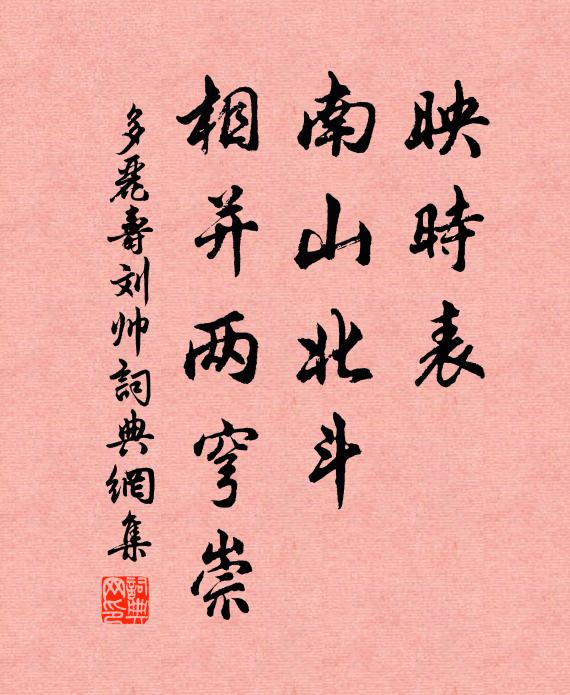 映時表
南山北斗
相并两穹崇
多麗壽刘帅詞典網集
詞典網印